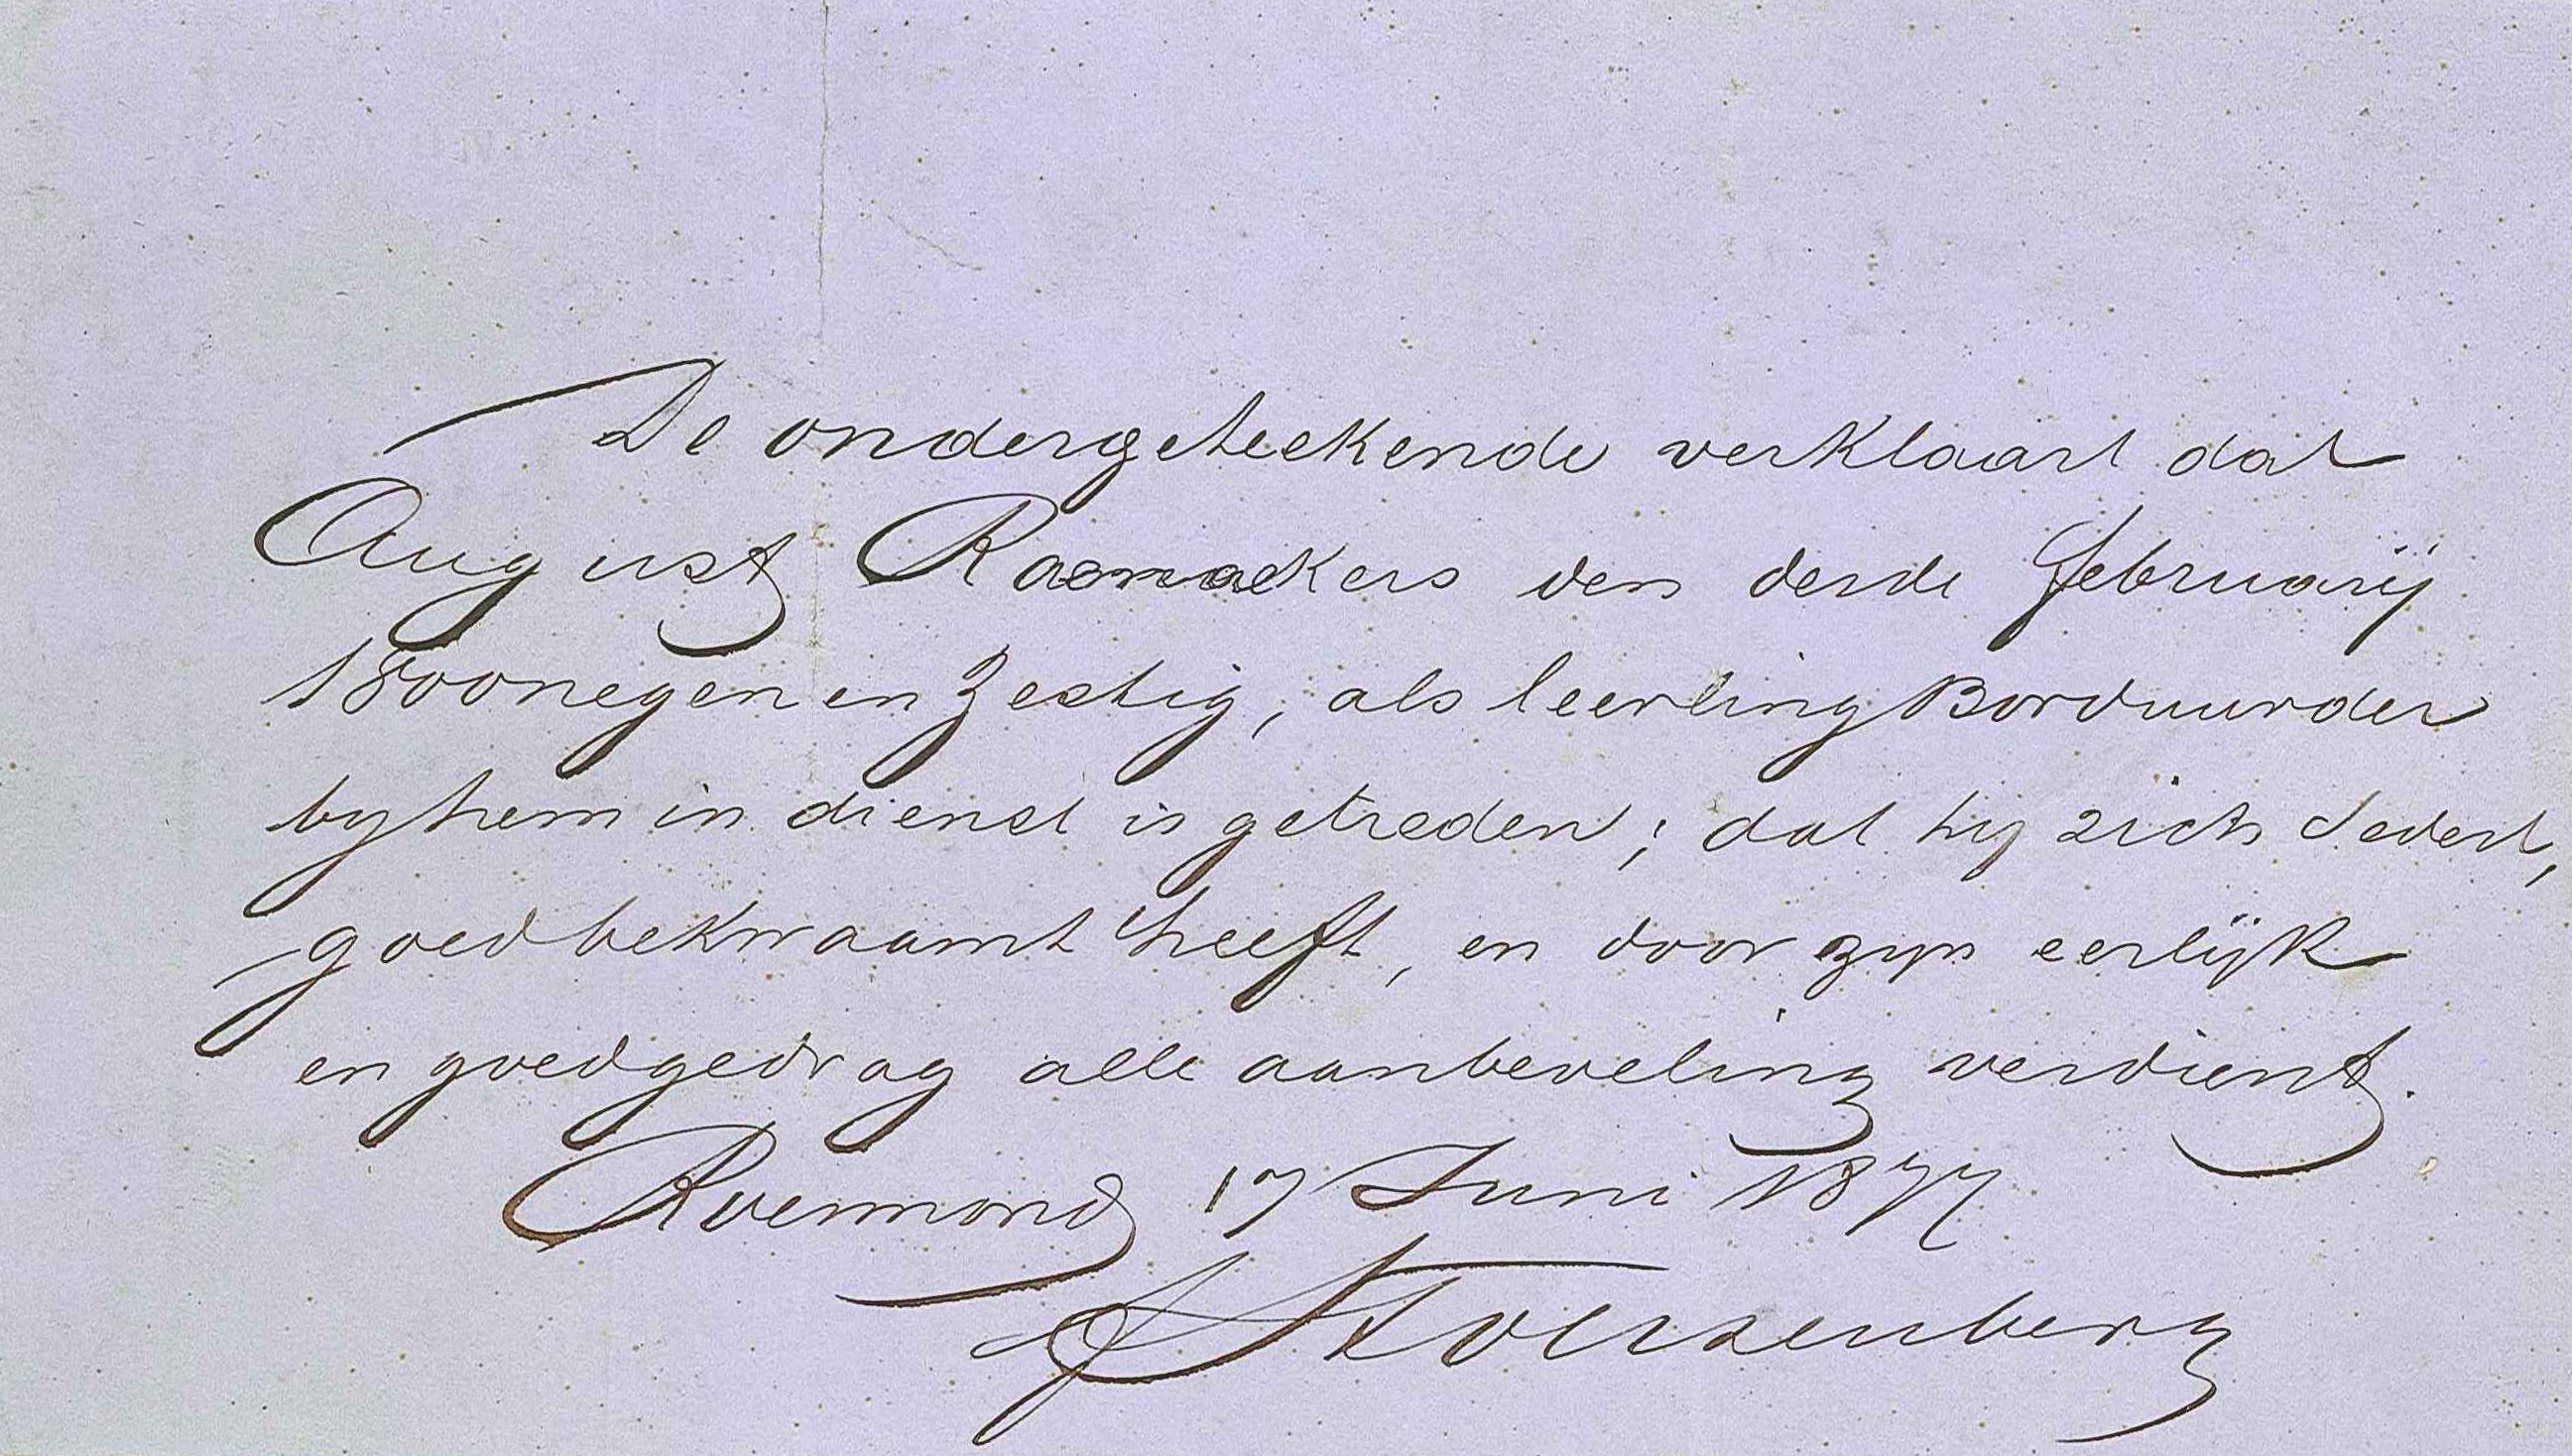 De ondergeteekende verklaart dat
August Raemaekers den derde februarij
1800negen en Zestig, als leerling Borduurder
by hem in dienst is getreden; dat hy zich sedert,
goed bekwaamt heeft, en door zyn eerlijk
en goedgedrag alle aanbeveling verdient.
Roermond 17 Juni 1877
F Stoltzenberg